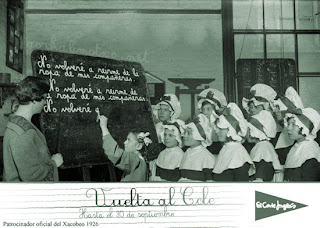 No volveré a reirme de la
ropa de mis compañeras.
No volveré a reirme de
la ropa de mis compañeras.
No volveré a
Vuelta al Cole
Hasta el 30 de septiembre
El Corte Inglés
Patrocinador oficial del Xacobeo 1926